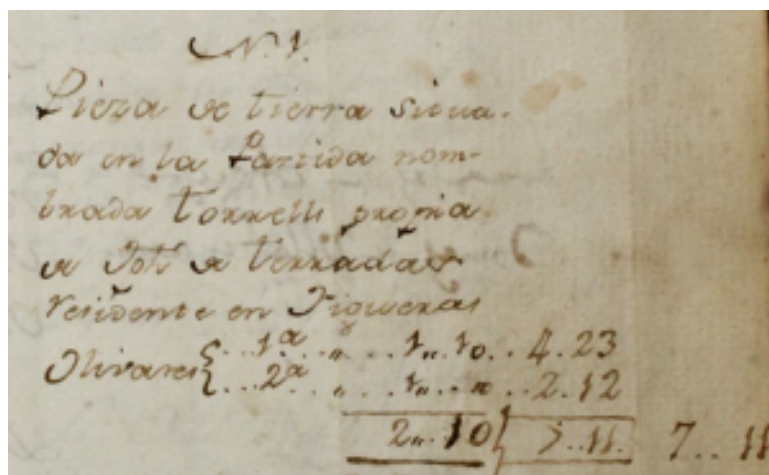 N. 1.
Pieza de tierra situa-
da en la Partida nom-
brada Torrelli propia
de Josè de Terradas
residente en Figueras
Olivares { ... 1ª. „ .. 1„. 10... 4. 23
{ ... 2ª. . „ . 1„... „ ...2. 12
2„. 10 { 7..11. 7.. 11